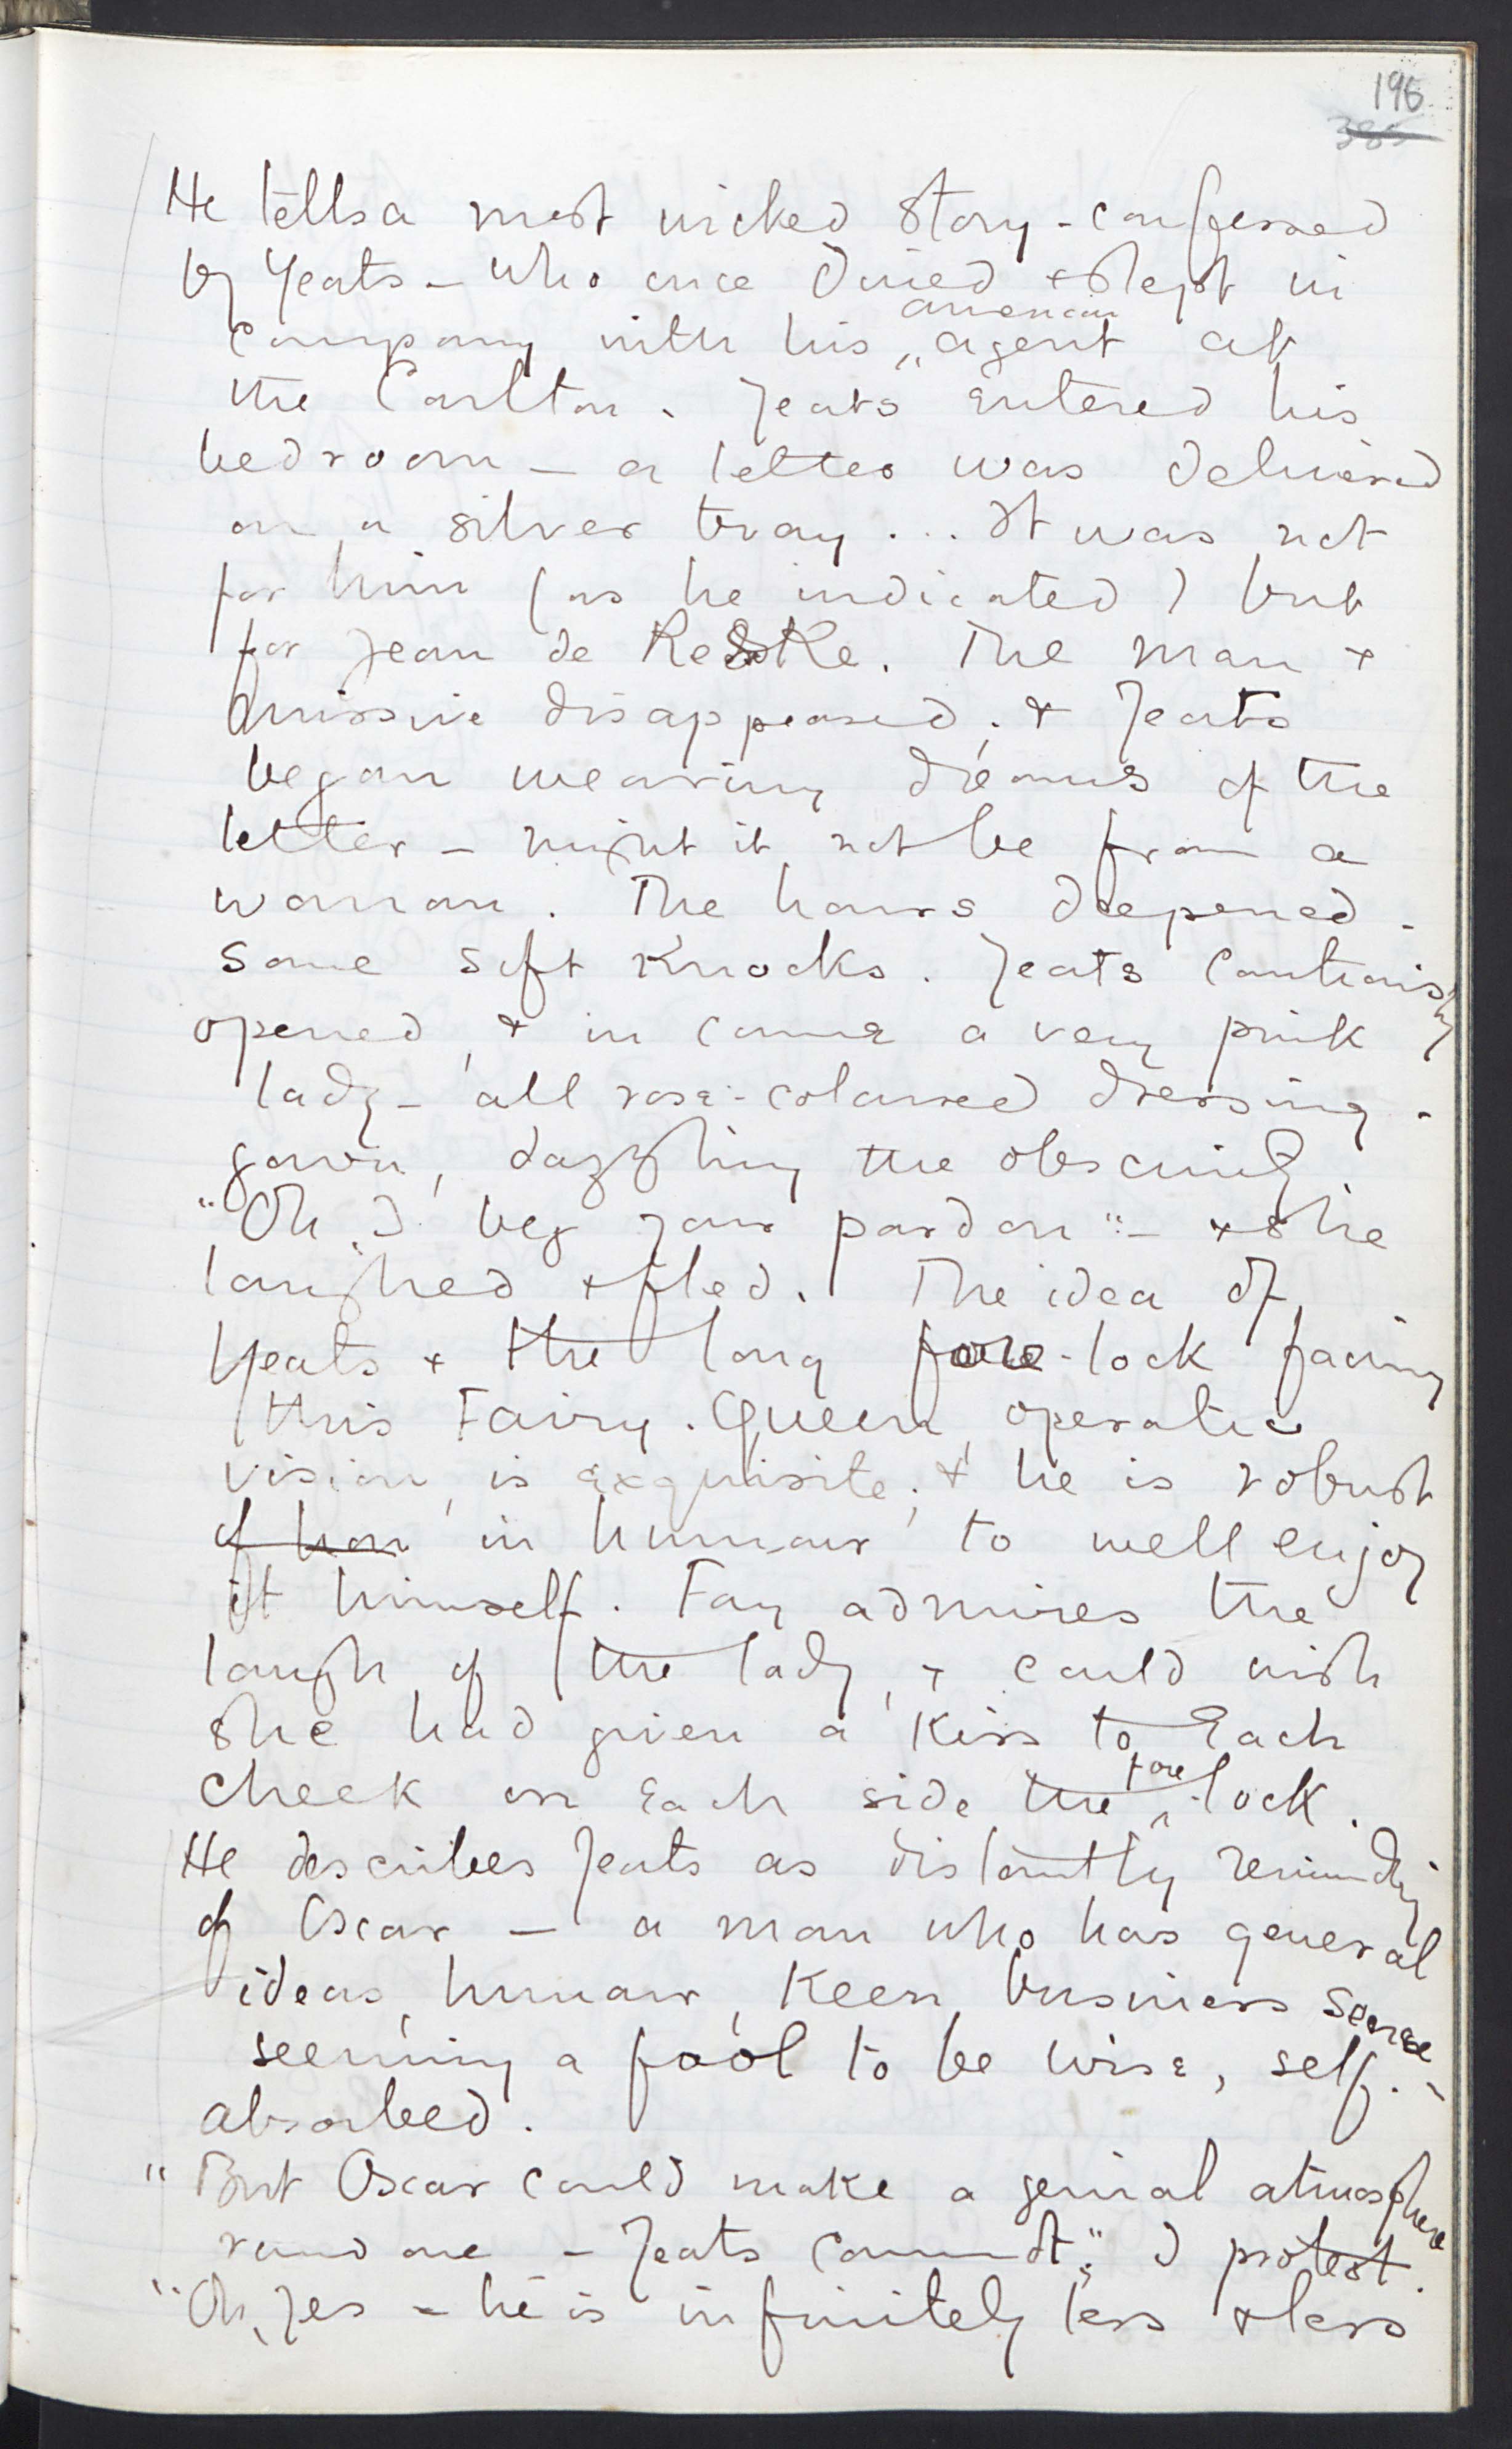 196
385
He tells a most wicked story - confessed
by Yeats - who once dined & slept in
american
company with his agent at
the Carlton. Yeats entered his
bedroom - a letter was delivered
on a silver tray ... It was not
for him (as he indicated) but
for Jean de Reske. The man &
missive disappeared; & Yeats
began weaving dreams of the
letter - might it not be from a
woman. The hours deepened -
some soft knocks. Yeats cautiously
opened, & in came a very pink
lady - all rose-coloured dressing-
gown, dazzling the obscurity.
"Oh, I beg your pardon" - & she
laughed & fled. The idea of
Yeats & the long fore-lock facing
this Fairy-Queen, operatic
vision, is exquisite; & he is robust
of hu in humour to well enjoy
it himself. Fay admires the
laugh of the lady, & could wish
she had given a kiss to each
fore
cheek on each side the -lock.
He describes Yeats as distantly reminding
of Oscar - a man who has general
ideas, humour, keen business sense,
seeming a fool to be wise, self-
absorbed.
"But Oscar could make a genial atmosphere
round one - Yeats cannot", I protest.
"Oh, yes - he is infinitely less & less